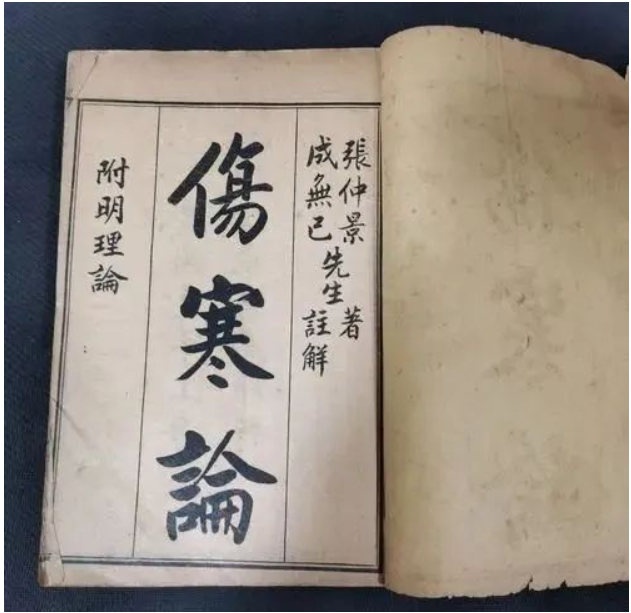 張仲景 先生 著
成無已 註解
傷寒論
附明理論